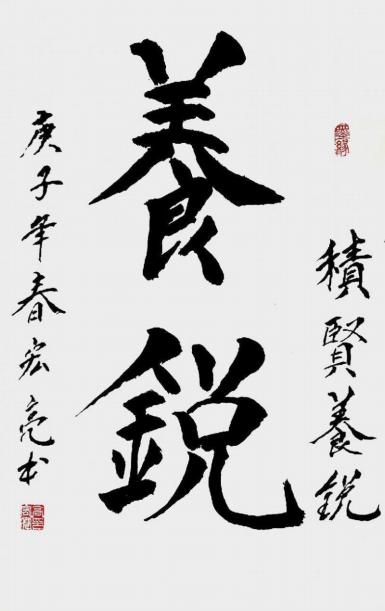 積賢養銳
養銳
庚子年春宏亮书